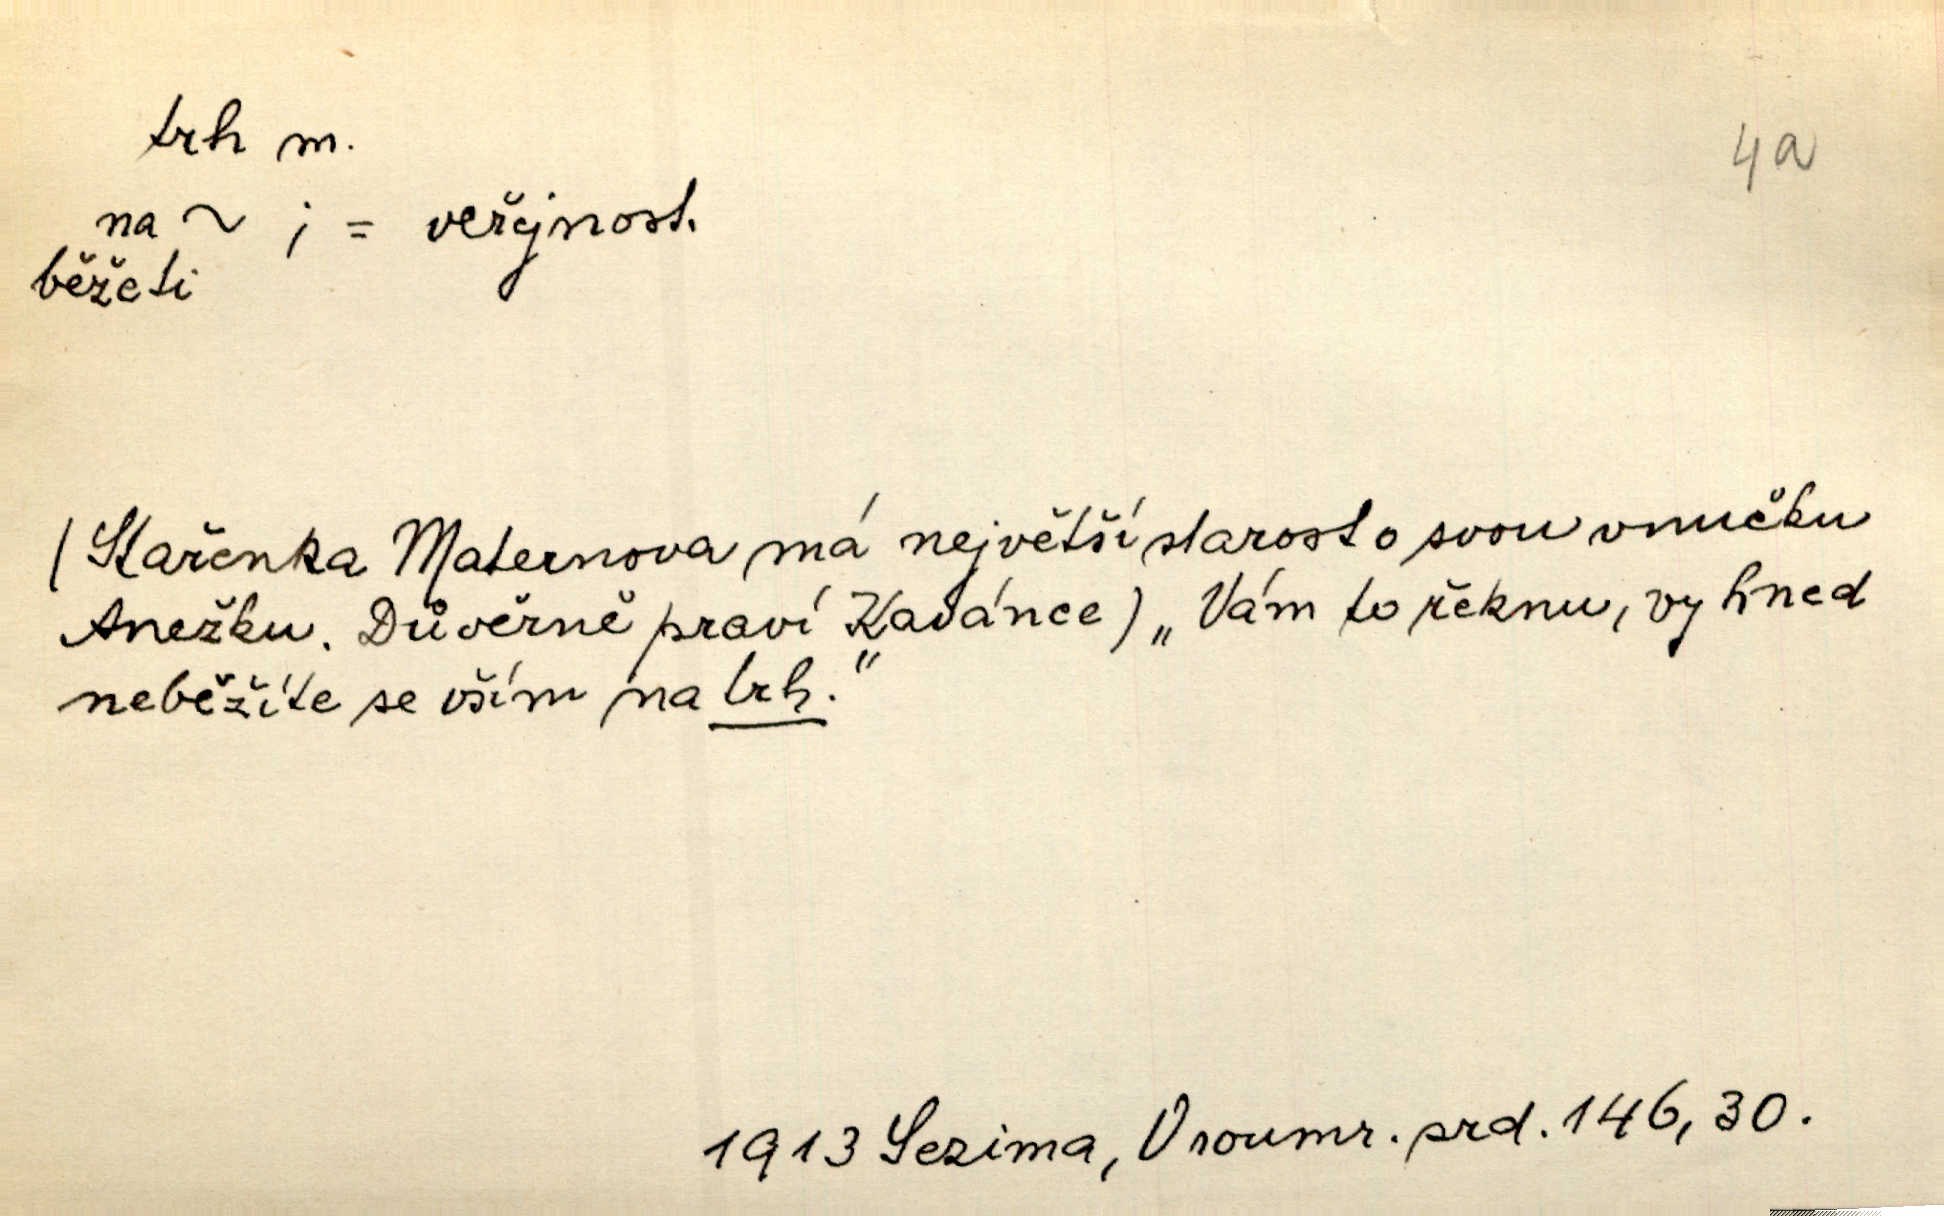 trh m.
4a
na ~ ; = veřejnost.
běžeti
(Stařenka Maternova má největší starost o svou vnučku
Anežku. Důvěrně praví Kavánce) „Vám to řeknu, vy hned
neběžíte se vším na trh."
1913 Sezima, V soumr. srd. 146, 30.